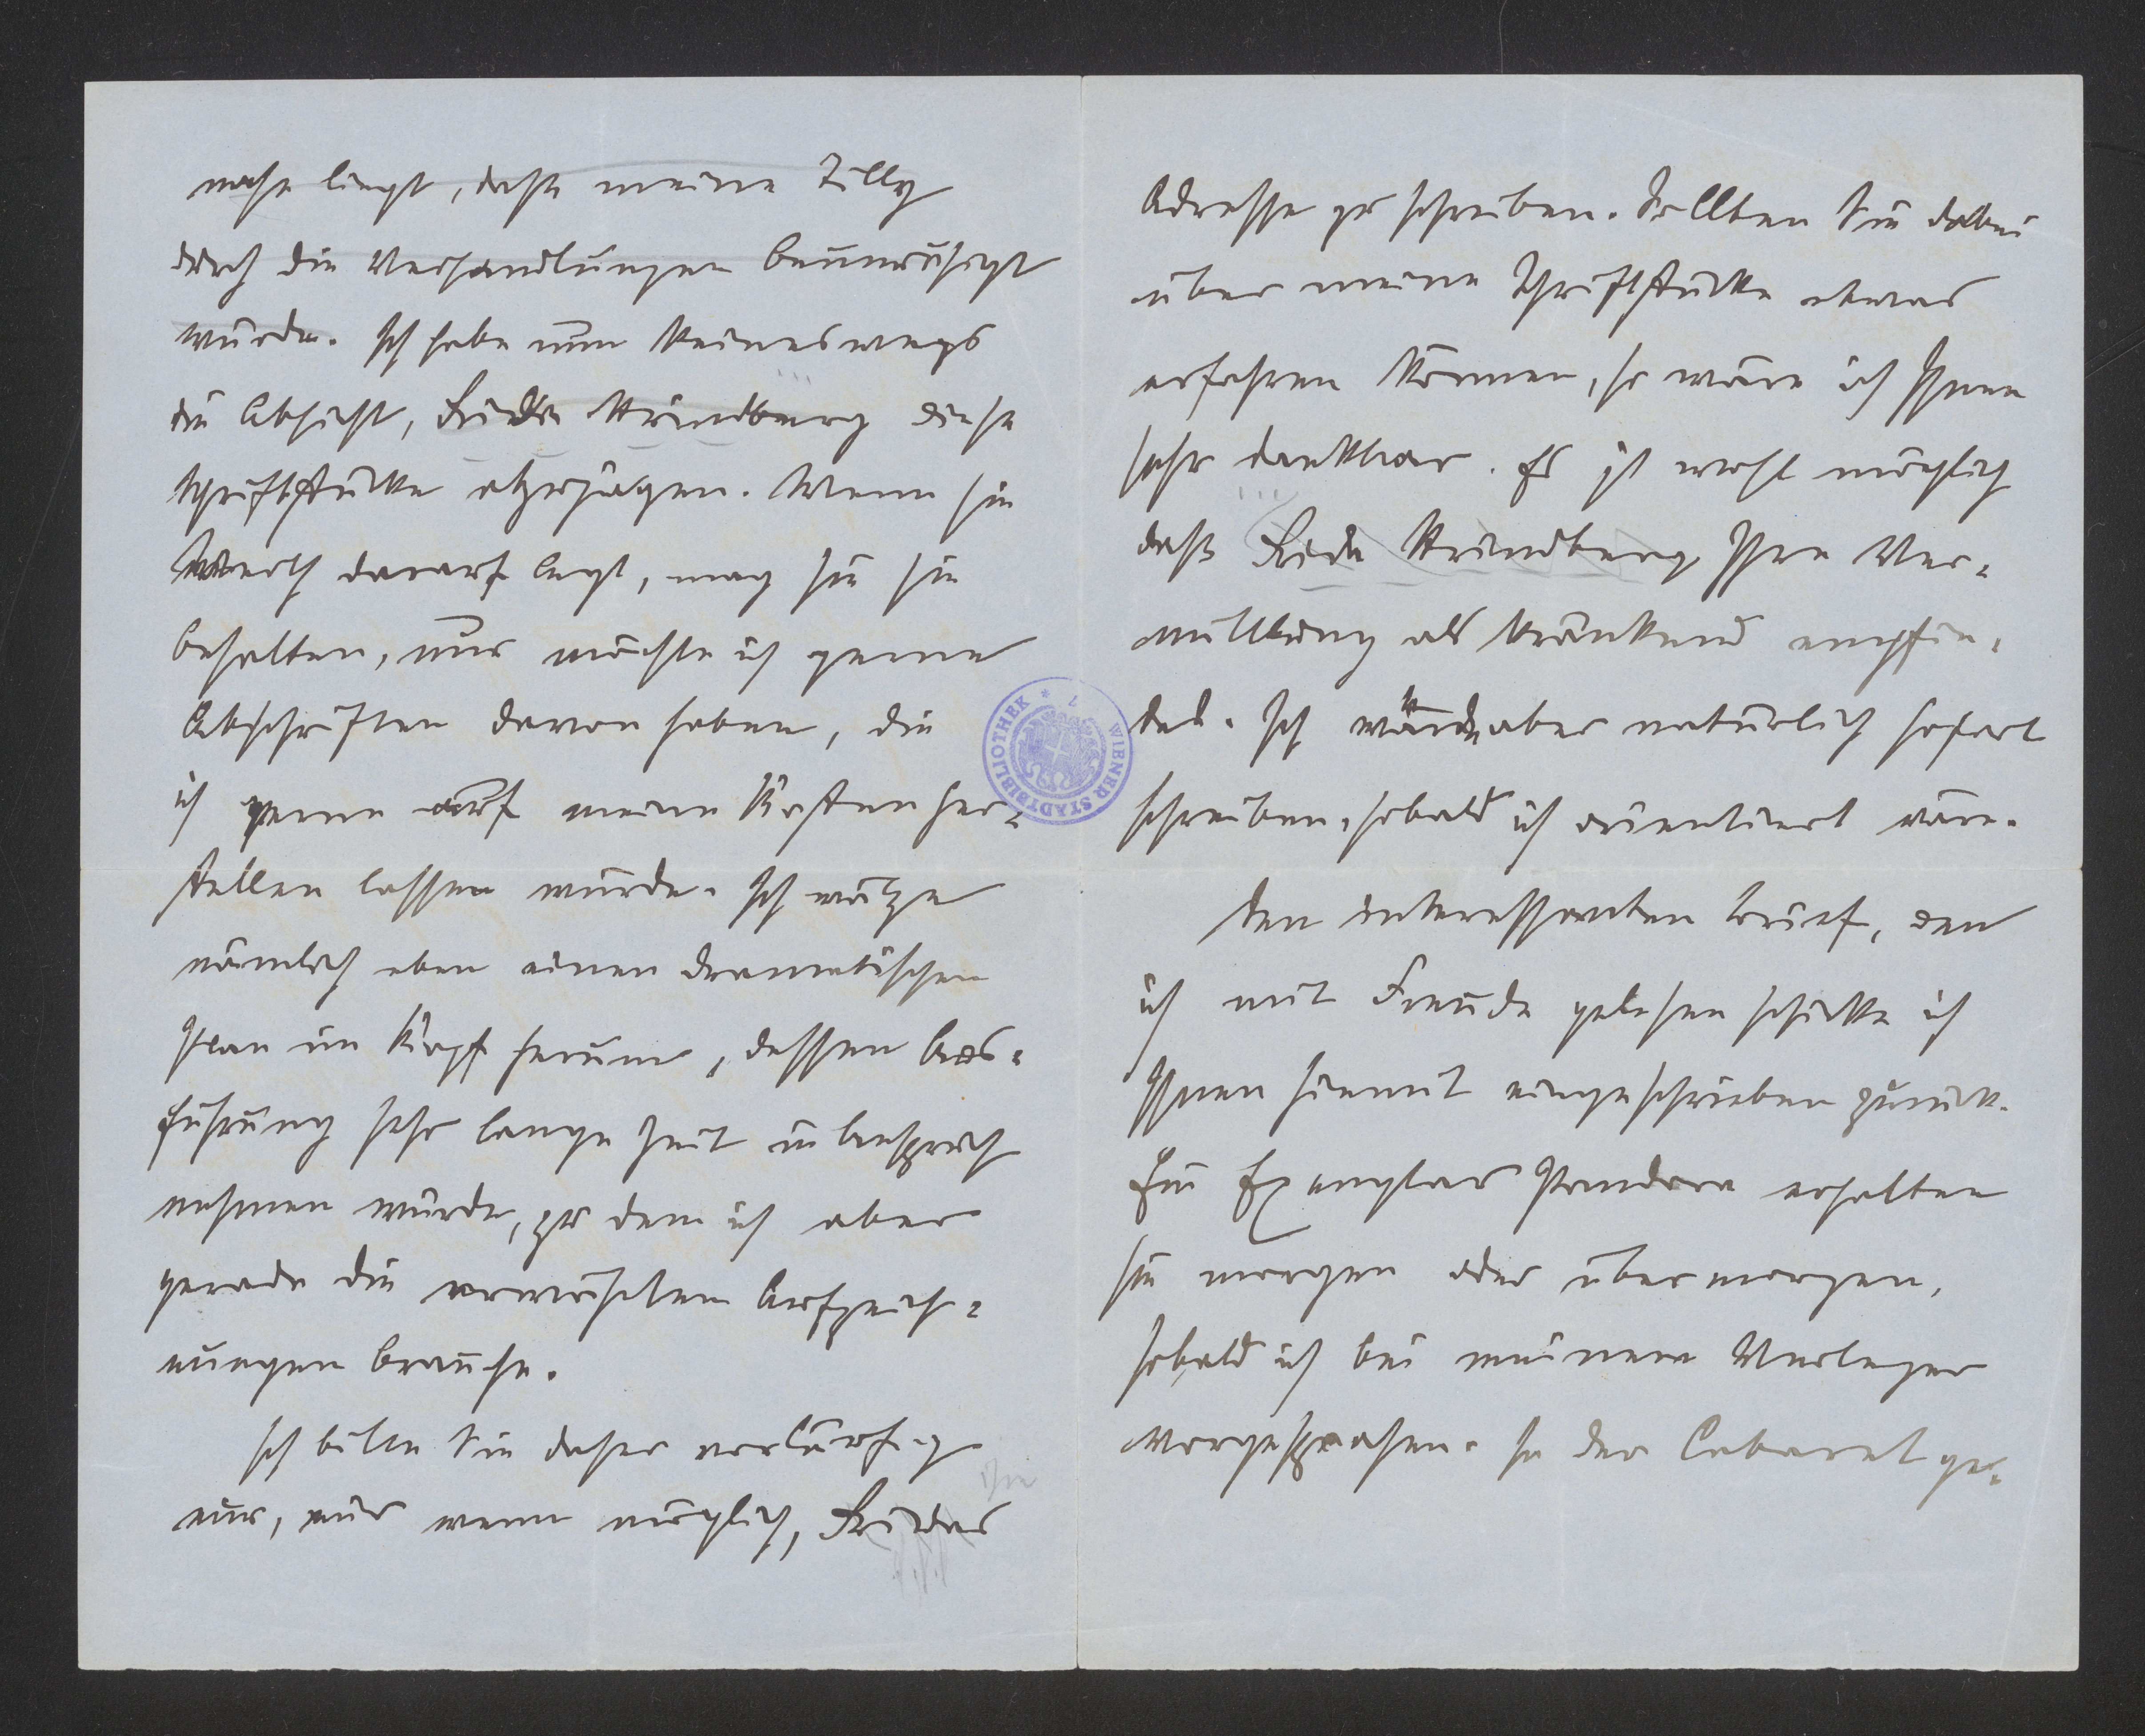 nahe liegt, daß meine Tilly
durch die Verhandlungen beunruhigt
würde. Ich habe nun keineswegs
die Absicht, Frida Strindberg diese
Schriftstücke abzujagen. Wenn sie
Werth darauf legt, mag sie sie
behalten, nur möchte ich gerne
Abschriften davon haben, die
ich gerne auf meine Kosten her-
stellen lassen würde. Ich wälze
nämlich eben einen dramatischen
Plan im Kopf herum, dessen Aus-
führung sehr lange Zeit in Anspruch
nehmen würde, zu dem ich aber
gerade die erwähnten Aufzeich-
nungen brauche.
Ich bitte Sie daher vorläufig
nur, nur wenn möglich, Fridas
Adresse zu schreiben. Sollten Sie dabei
über meine Schriftstücke etwas
erfahren können, so wäre ich Ihnen
sehr dankbar. Es ist wohl möglich
daß Frida Strindberg Ihre Ver-
mittlung als kränkend empfin-
det. Ich würde aber natürlich sofort
schreiben, sobald ich orientiert wäre.
Den interessanten Brief, den
ich mit Freude gelesen schicke ich
Ihnen hiemit eingeschrieben zurück.
Ein Exemplar Pandora erhalten
Sie morgen oder übermorgen,
sobald ich bei meinem Verleger
vorgesprochen. In der Cabaret ge-
WIENER STADTBIBLIOTHEK